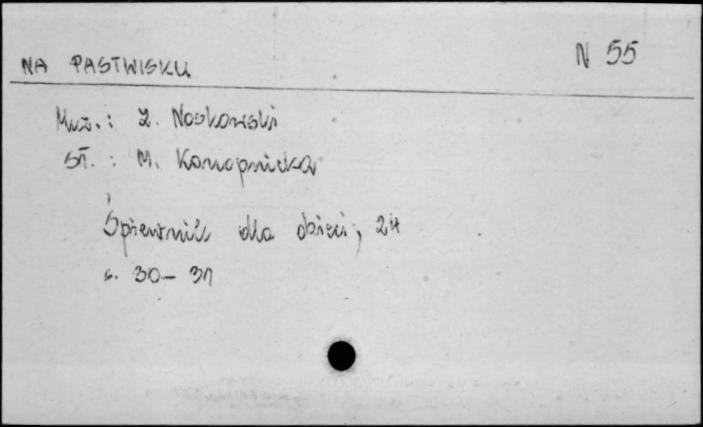 NA PASTWISKU
N 55
Muz.: Z. Noskowski
sł.: M. Konopnicka
Śpiewnik dla dzieci, 24
s. 30-31